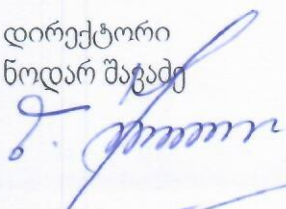 დირექტორი
ნოდარ შავაძე